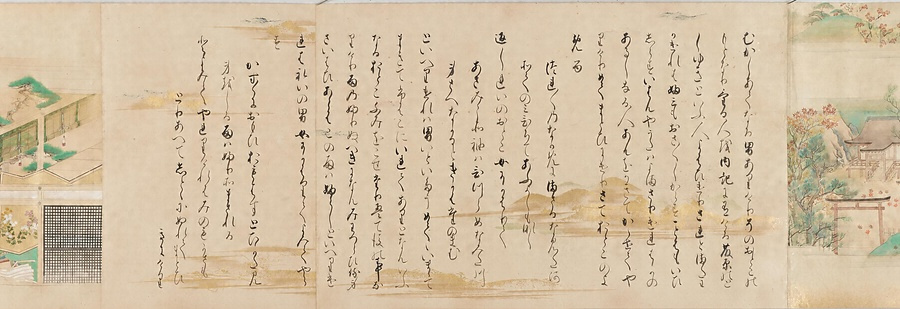 むかしあてなる男ありけりその男のも
となりける人を内記にありける藤原の
としゆきといふ人よはひけりされとまたわ
かけれは文もおさ〱しからすことはもいひ
しらすいはんやうたはよまさりけれはかの
あるしなる人あんをかきてかゝせてや
りけりめてまとひにけりさておとこのよ
める
つれ〱のなかめにまさるなみた河
袖のみひちてあふよしもなし
返しれいのおとこ女にかはりて
あさみこそ袖はひつらめなみた川
身さへなかるときかはたのまむ
といへりけれは男いといたうめてゝいまゝて
まきてふはこにいれてありとなんいふ
なる男ふみをこせたりえて後の事なり
けり雨のふりぬへきになんみわつらひ侍
さいはひあらはこの雨はふらしといへりけ
れはれいの男女にかはりてよみてや
る
かす〱におもひおもはすとひかたみ
身をしる雨はふりそまされる
とよみてやれりけれはみのもかさも
とりあへてしとゝにぬれてまとひ
きにけり